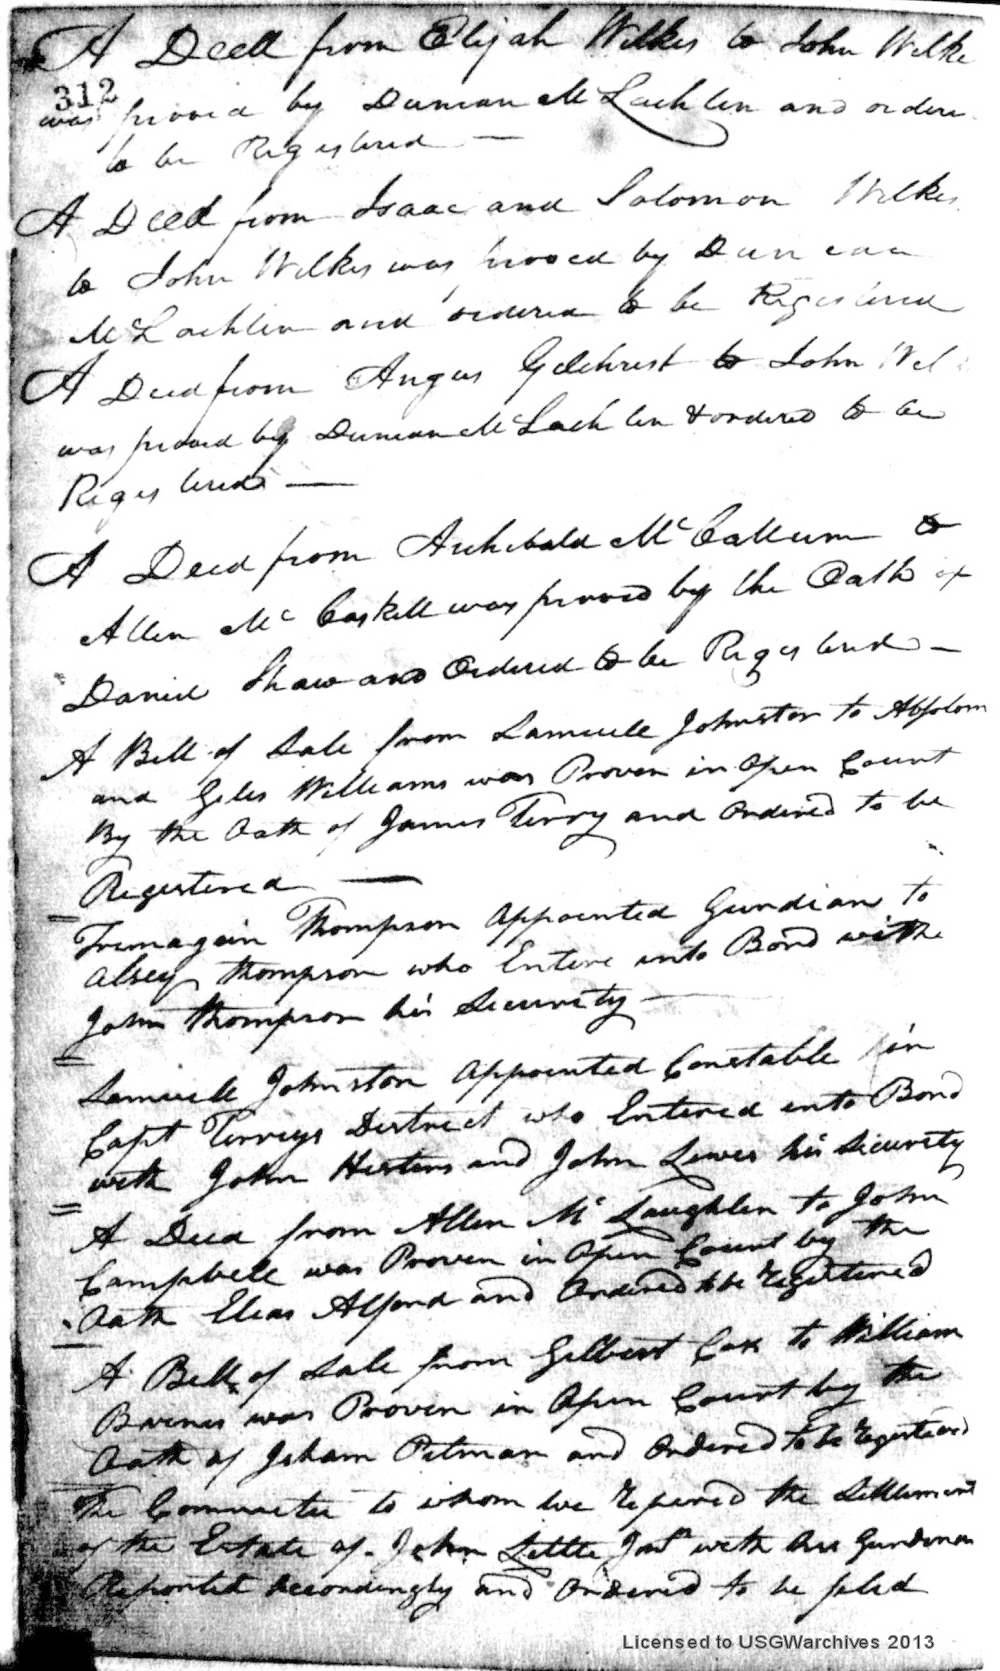 A Deed from Elijah Wilkes to John Wilke
312
was proved by Duncan McLachlin and ordere
to be Registered —
A Deed from Isaac and Solomon Wilkes
to John Wilkes was proved by Duncan
McLachlin and ordered to be Registered
A Deed from Angus Gilchrist to John Wil
was proved by Duncan McLachlin & ordered to be
Registered —
A Deed from Archibald McCallum to
Allen McCaskill was proved by the Oath of
Daniel Shaw and Ordered to be Registered —
A Bill of Sale from Samuell Johnston to Absolom
and Giles Williams was Proven in Open Court
By the Oath of James Terry and Ordered to be
Registered —
Thompson Appointed Gurdian to
Alsey Thompson who Entere into Bond with
John Thompson his Security —
Samuell Johnston Appointed Constable in
Capt Terreys District who Entered into Bond
with John and John Lewis his Security
A Deed from Allen McLaughlin to John
Campbell was Proven in Open Court by the
Oath Elias Alford and Ordered to be Registered
A Bill of Sale from Gilbert Cox to William
was Proven in Open Court by the
Oath of Isham Pitman and Ordered to be Registered
The Committee to whom we the Settlement
of the Estate of John Little with Gurdian
Reported Accordingly and Ordered to be filed
Licensed to USGWarchives 2013